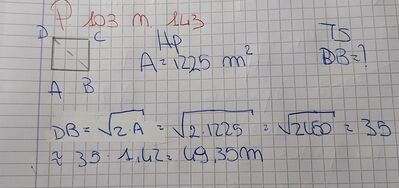 P 103 n. 143
D C
Hp
TS
A = 1225 m²
DB = ?
A B
DB = √2A = √2·1225 = √2450 = 35
≈ 35 · 1,42 = 49,35 m